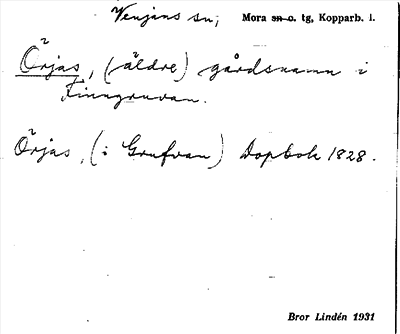 Venjans sn; Mora sn o. tg, Kopparb. l.
Örjas, (äldre) gårdsnamn i
Finngruvan.
Örjas, (i Grufvan) Dopbok 1828.
Bror Lindén 1931